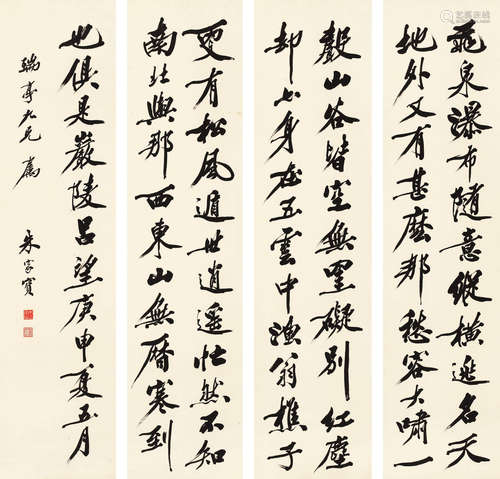 飛泉瀑布隨意縱橫逃名天
地外又有甚麼那愁容大嘯一
聲山谷皆空無罣礙別紅塵
却此身在五雲中漁翁樵子
更有松風遁世逍遥忙然不知
南北與那西東山無曆寒到
也俱是巖陵呂望庚申夏五月
瑞亭九兄屬
朱家寶